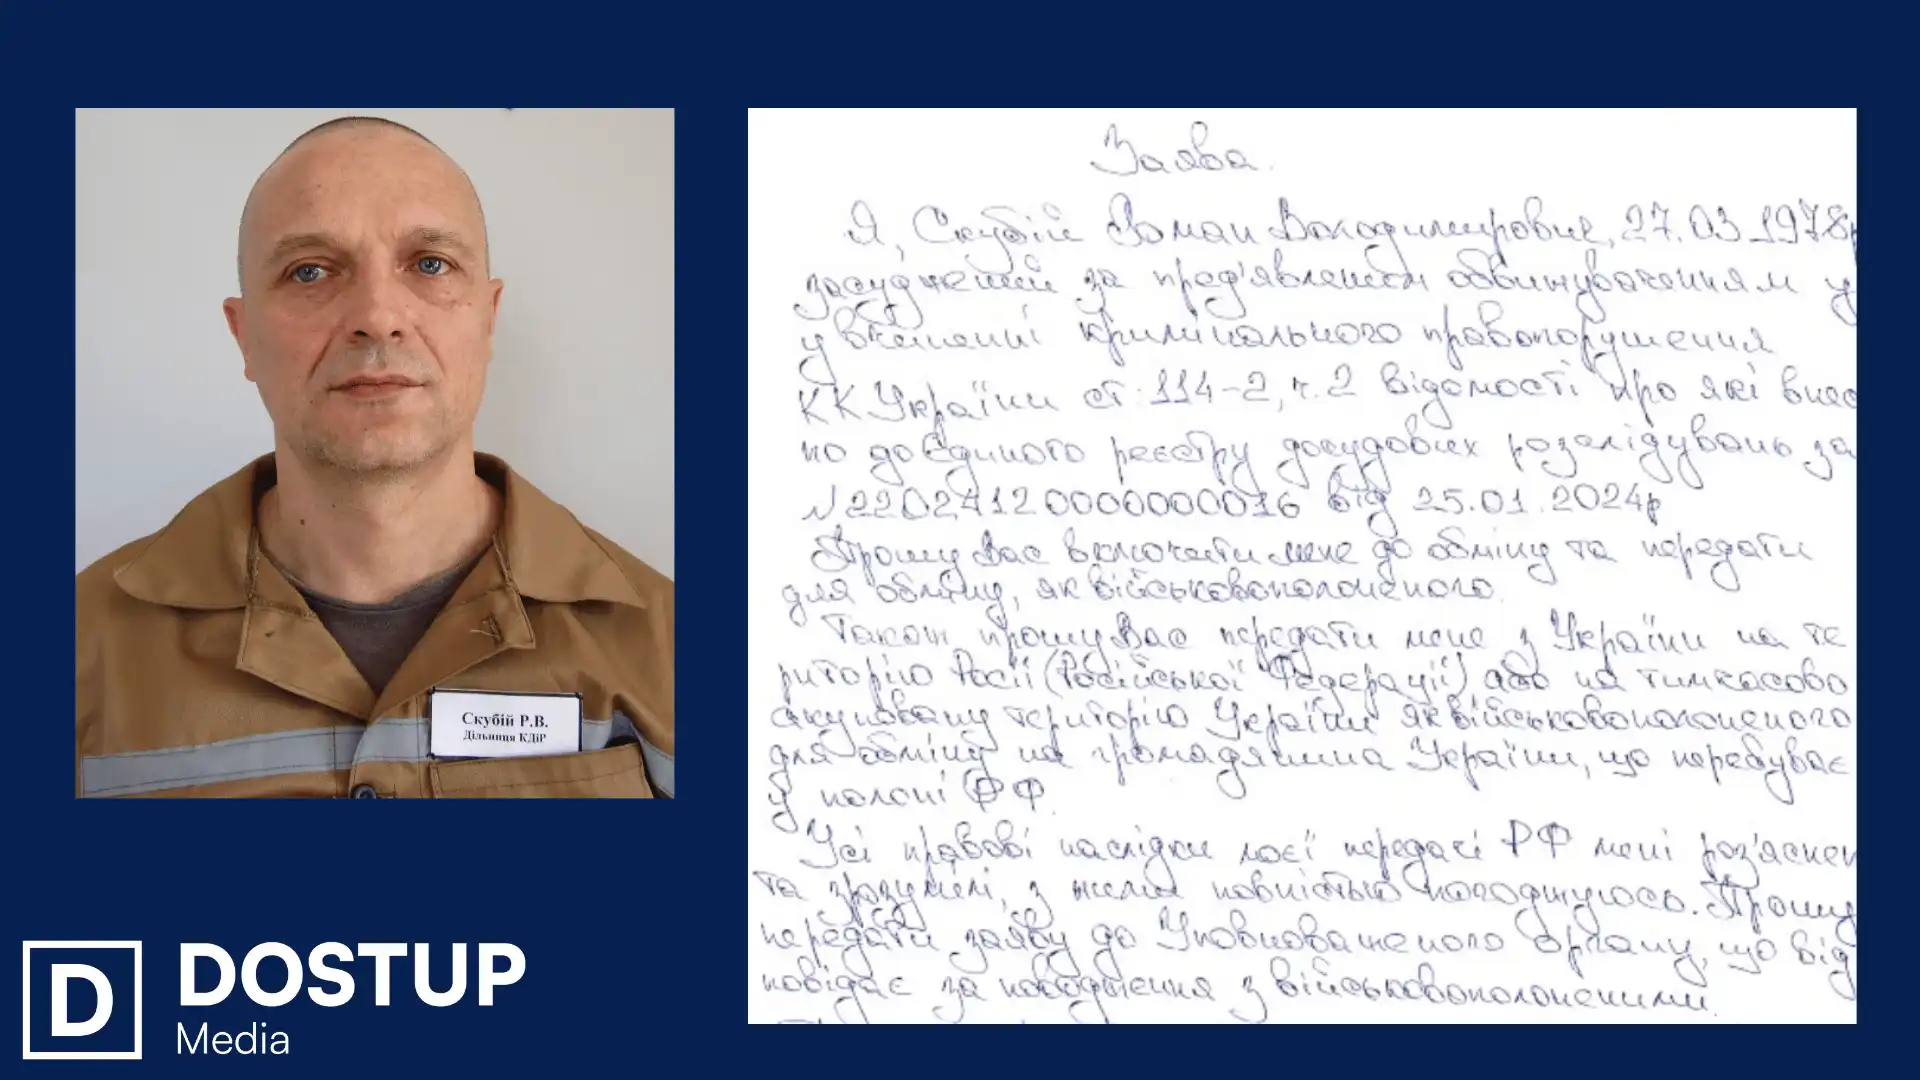 Скубій Р.В.
Дільниця КДіР
D DOSTUP
Media
Заява.
Я, Скубій Роман Володимирович, 27.03.1978р
засуджений за пред'явленим обвинуваченням у
у вчиненні кримінального правопорушення
КК України ст. 114-2, ч. 2 відомості про які внес
но до Єдиного реєстру досудових розслідувань за
№22024120000000016 від 25.01.2024р
Прошу Вас включити мене до обміну та передати
для обміну, як військовополоненого.
Також прошу Вас передати мене з України на те
риторію Росії (Російської Федерації) або на тимчасово
окуповану територію України як військовополоненого
для обміну на громадянина України, що перебуває
у полоні РФ.
Усі правові наслідки моєї передачі РФ мені роз'яснен
та зрозумілі, з ними повністю погоджуюсь. Прошу
передати заяву до Уповноваженого органу, що від
повідає за поводження з військовополоненими.